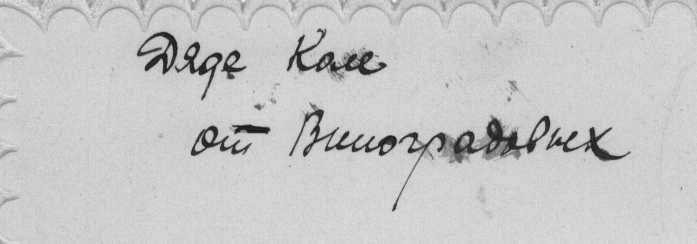 Дяде Коле
от Виноградовых